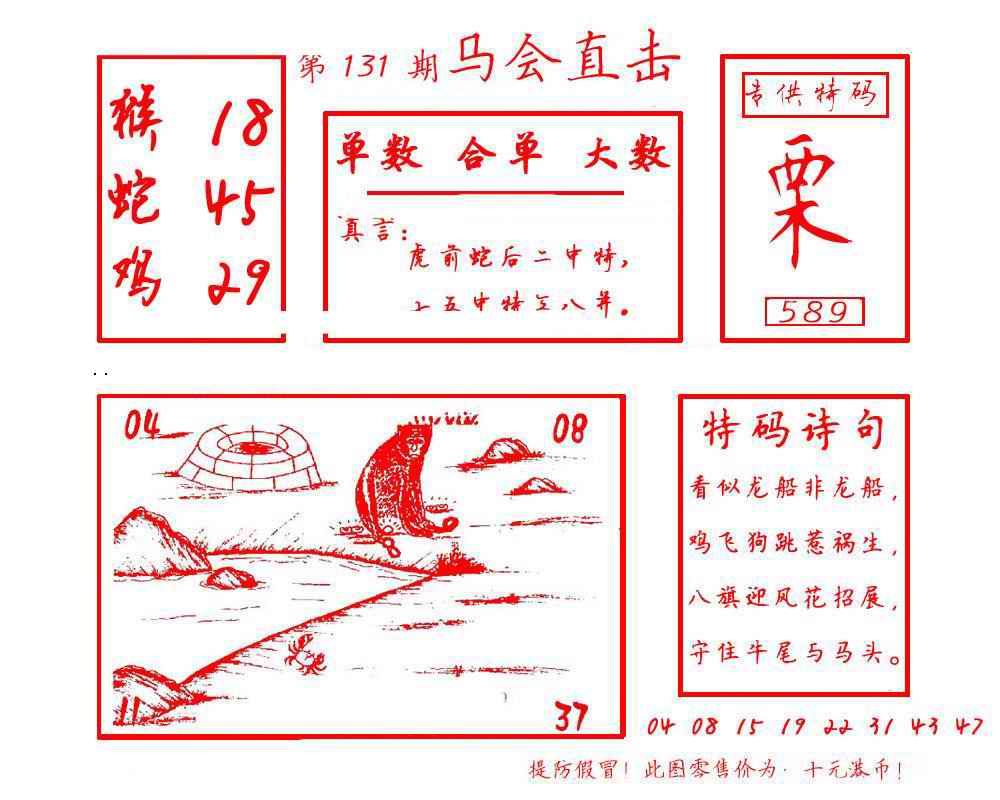 第 131 期 马会直击
猴 18
蛇 45
鸡 29
单数 合单 大数
真言：
虎前蛇后二中特，
五中特 八算。
专供特码
栗
589
..
04
08
11
37
特码诗句
看似龙船非龙船，
鸡飞狗跳惹祸生，
八旗迎风花招展，
守住牛尾与马头。
04 08 15 19 22 31 43 47
提防假冒！此图零售价为·十元港币！